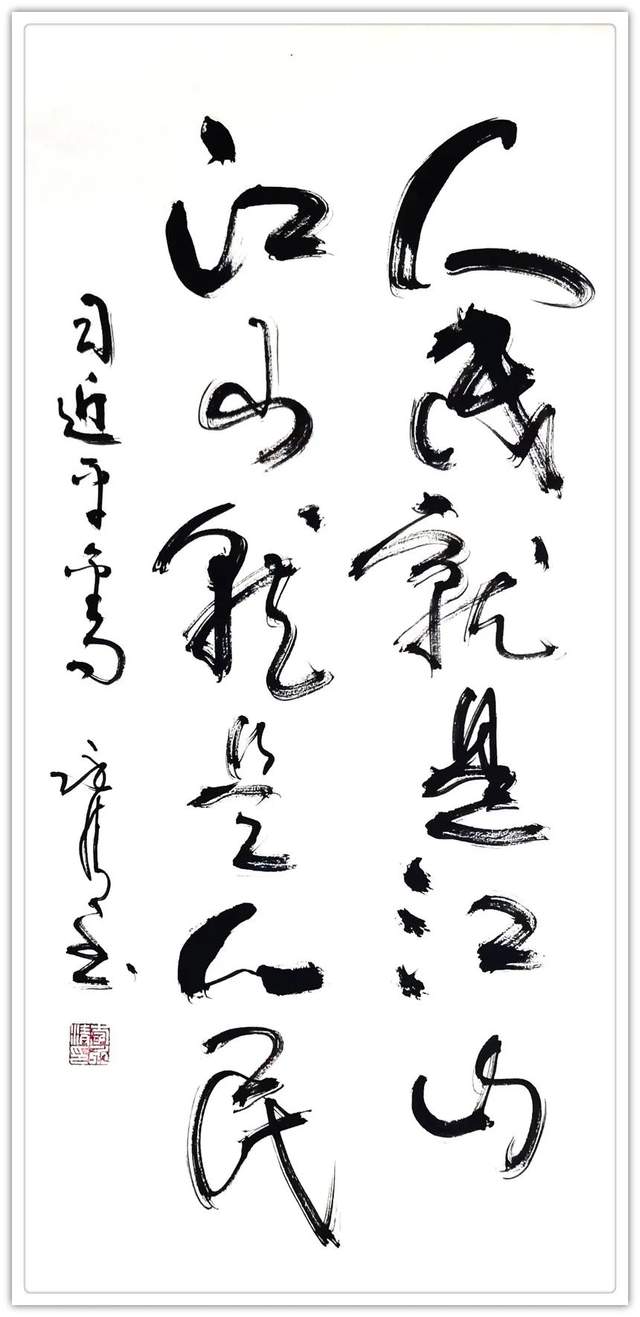 人民就是江山
江山就是人民
习近平